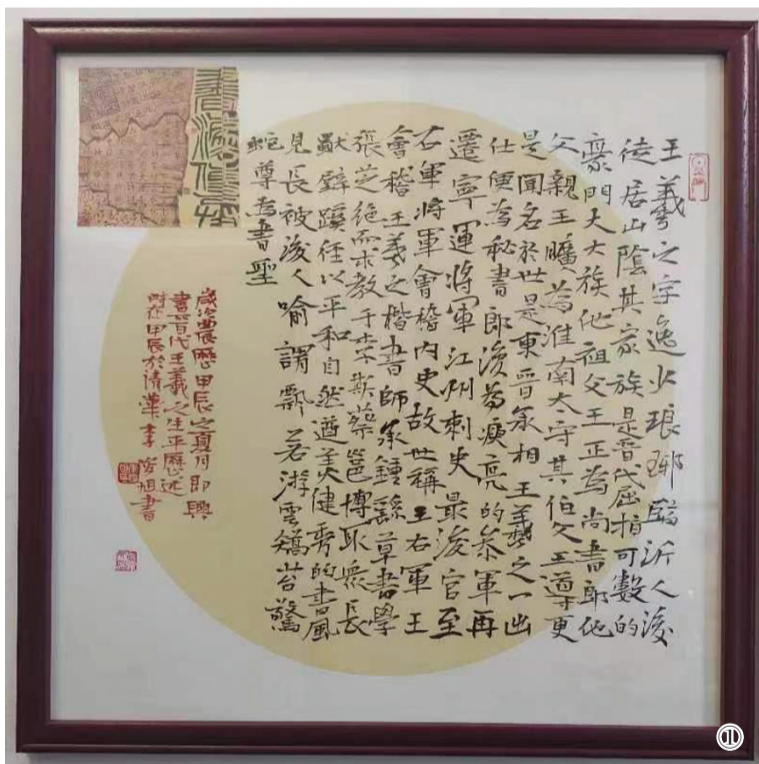 王羲之字逸少琅琊臨沂人後
徒居山陰其家族是晉代屈指可數的
豪門大大族他祖父王正為尚書郎他
父親王曠為淮南太守其伯父王導更
是聞名於世是東晉丞相王羲之一出
仕便為秘書郎後為庾亮的參軍再
遷寧運將軍江州刺史最後官至
右軍將軍會稽内史故世稱王右軍王
會稽王羲之楷書師承鍾繇草書學
張芝绝而求教于李斯蔡邕博取衆長
獻辟蹊径以平和自然遒美健秀的書風
見長被後人喻謂飄若游雲矯若驚
蛇尊為書聖
歲次農歷甲辰之夏月即興
書晉代王羲之生平歷述
時在甲辰於清華李旭書